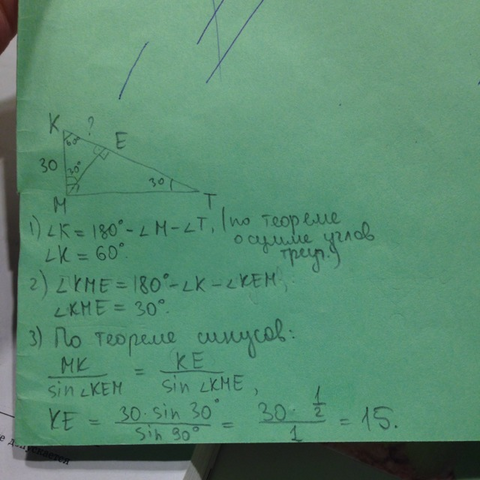 K ? E
60°
30 30°
30°
M T
1) ∠K = 180° - ∠M - ∠T, (по теореме
о сумме углов
треуг.)
∠K = 60°.
2) ∠KME = 180° - ∠K - ∠KEM,
∠KME = 30°.
3) По теореме синусов:
MK / sin∠KEM = KE / sin∠KME,
KE = 30 · sin 30° / sin 90° = 30 · 1/2 / 1 = 15.